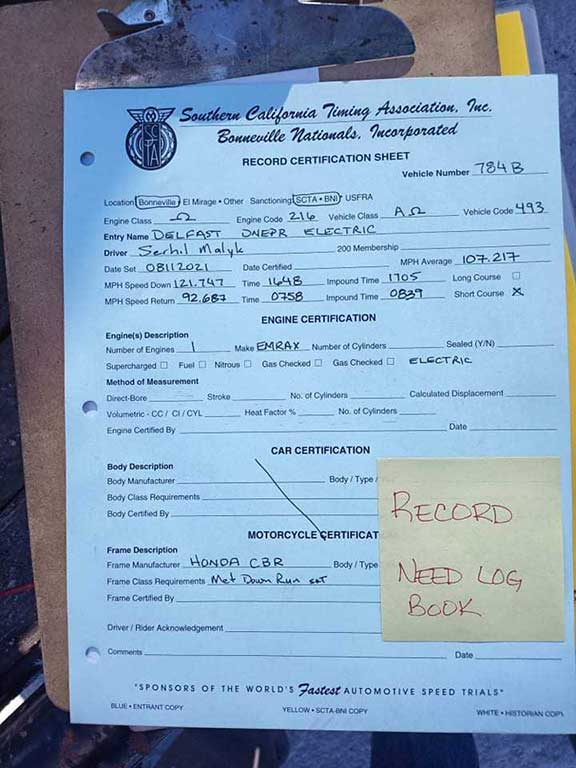 Southern California Timing Association, Inc.
Bonneville Nationals, Incorporated
SCTA
RECORD CERTIFICATION SHEET
Vehicle Number 784B
Location Bonneville • El Mirage • Other Sanctioning SCTA • BNI USFRA
Engine Class Ω Engine Code 216 Vehicle Class AΩ Vehicle Code 493
Entry Name DELFAST DNEPR ELECTRIC
Driver Serhii Malyk 200 Membership
Date Set 08112021 Date Certified MPH Average 107.217
MPH Speed Down 121.747 Time 1648 Impound Time 1705 Long Course
MPH Speed Return 92.687 Time 0758 Impound Time 0839 Short Course X
ENGINE CERTIFICATION
Engine(s) Description
Number of Engines 1 Make EMRAX Number of Cylinders Sealed (Y/N)
Supercharged Fuel Nitrous Gas Checked Gas Checked ELECTRIC
Method of Measurement
Direct-Bore Stroke No. of Cylinders Calculated Displacement
Volumetric - CC / CI / CYL Heat Factor % No. of Cylinders
Engine Certified By Date
CAR CERTIFICATION
Body Description
Body Manufacturer Body / Type /
Body Class Requirements
Body Certified By
MOTORCYCLE CERTIFICAT
Frame Description
Frame Manufacturer HONDA CBR Body / Type
Frame Class Requirements Met Down Run
Frame Certified By
Driver / Rider Acknowledgement
Comments Date
RECORD
NEED LOG
BOOK
"SPONSORS OF THE WORLD'S Fastest AUTOMOTIVE SPEED TRIALS"
BLUE • ENTRANT COPY YELLOW • SCTA-BNI COPY WHITE • HISTORIAN COPY